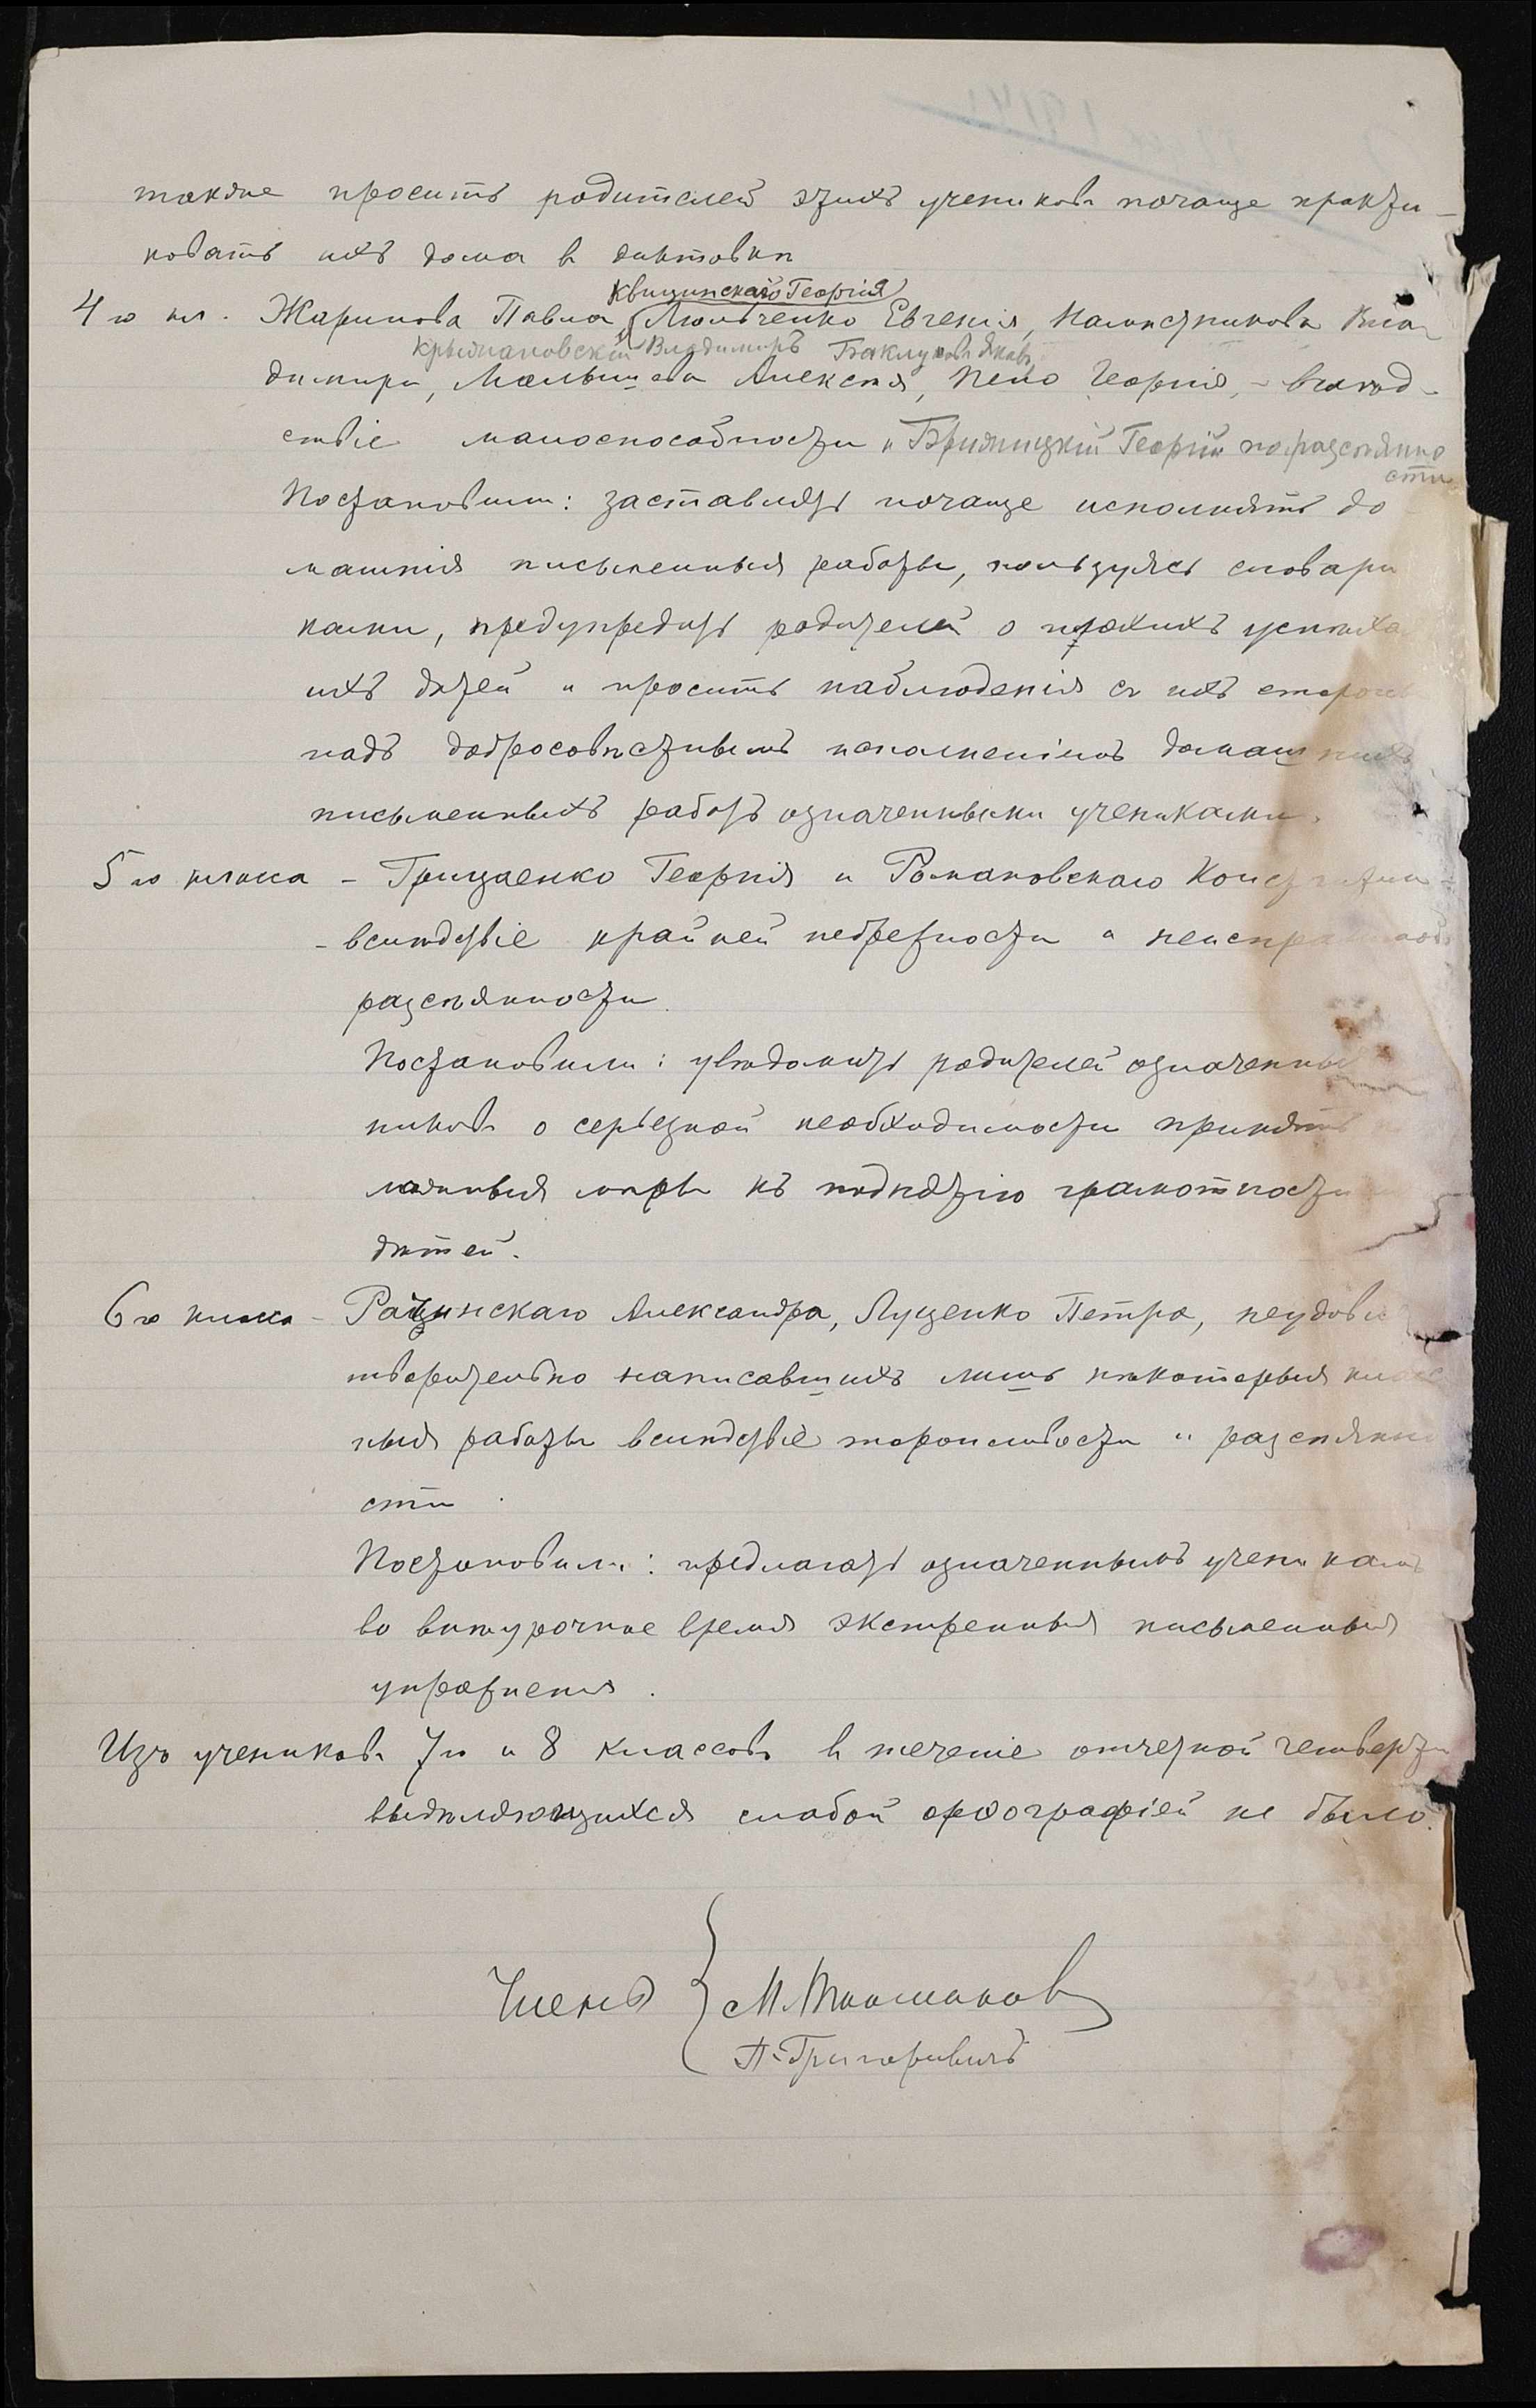 также просить родителей этихъ учениковъ почаще практи-
ковать ихъ дома въ диктовкѣ
Квицинскаго Георгія
4го кл. Жаринова Павла, Люльченко Евгенія, Намѣстникова Вла-
Крыжановскій Владимиръ Баклуновъ Яковъ
димира, Малышева Алексѣя, Пепо Георгія, - вслѣд-
ствіе малоспособности и Бржицкій Георгій по разсѣянно
сти
Постановили: заставлять почаще исполнять до
машнія письменныя работы, пользуясь словари
ками, предупредить родителей о плохихъ успѣха
ихъ дѣтей и просить наблюденія съ ихъ сторон
надъ добросовѣстнымъ исполненіемъ домашнихъ
письменныхъ работъ означенными учениками.
5го класса - Грицаенко Георгія и Романовскаго Конст
- вслѣдствіе крайней небрежности и
разсѣянности.
Постановили: увѣдомить родителей означенны
никовъ о серьезной необходимости принять
можныя мѣры къ поднятію грамотности
дѣтей.
6го класса - Рацинскаго Александра, Луценко Петра, неудовле
творительно написавшихъ лишь нѣкоторыя класс
ныя работы вслѣдствіе торопливости и разсѣянно
сти.
Постановили: предлагать означеннымъ ученикамъ
во внѣурочное время экстренныя письменныя
упражненія.
Изъ учениковъ 7го и 8 классовъ въ теченіе отчетной четверти
выдѣляющихся слабой орѳографіей не было.
Члены
П. Григоровичъ